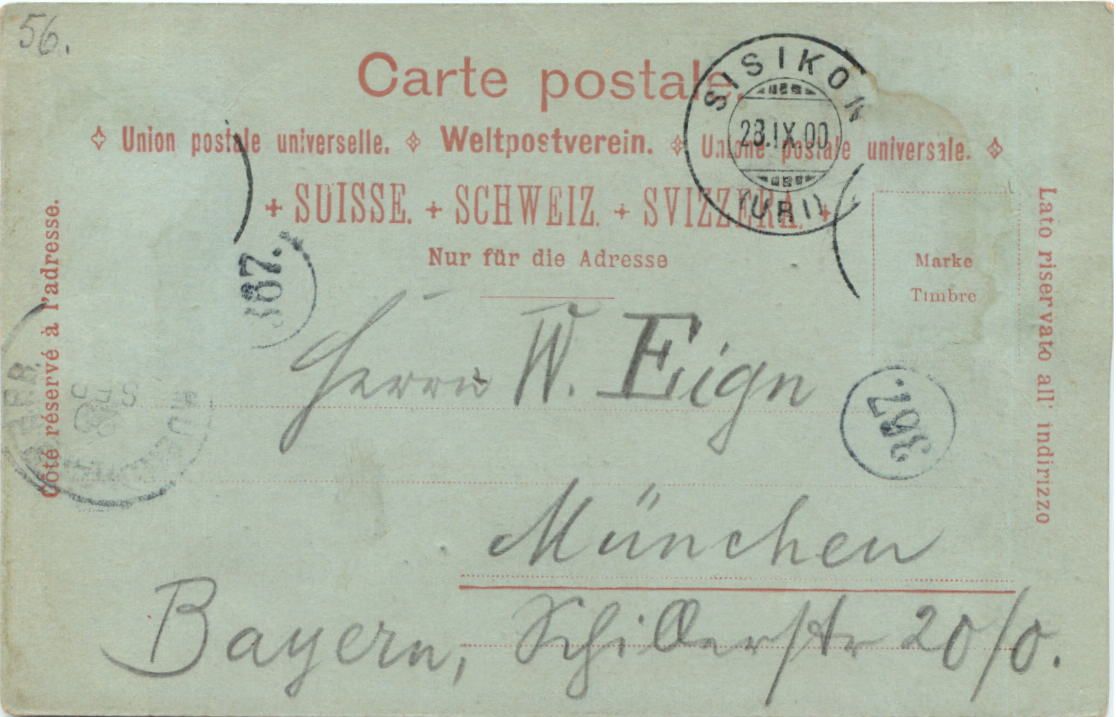 56.
Carte postale.
Union postale universelle. Weltpostverein. Unione postale universale.
+ SUISSE. + SCHWEIZ. + SVIZZERA. +
Nur für die Adresse
SISIKON
28.IX.00
(URI)
Côté réservé à l'adresse.
Lato riservato all' indirizzo
Marke
Timbre
367.
367.
Herrn W. Eign
München
Bayern, Schillerstr 20/0.
SEP